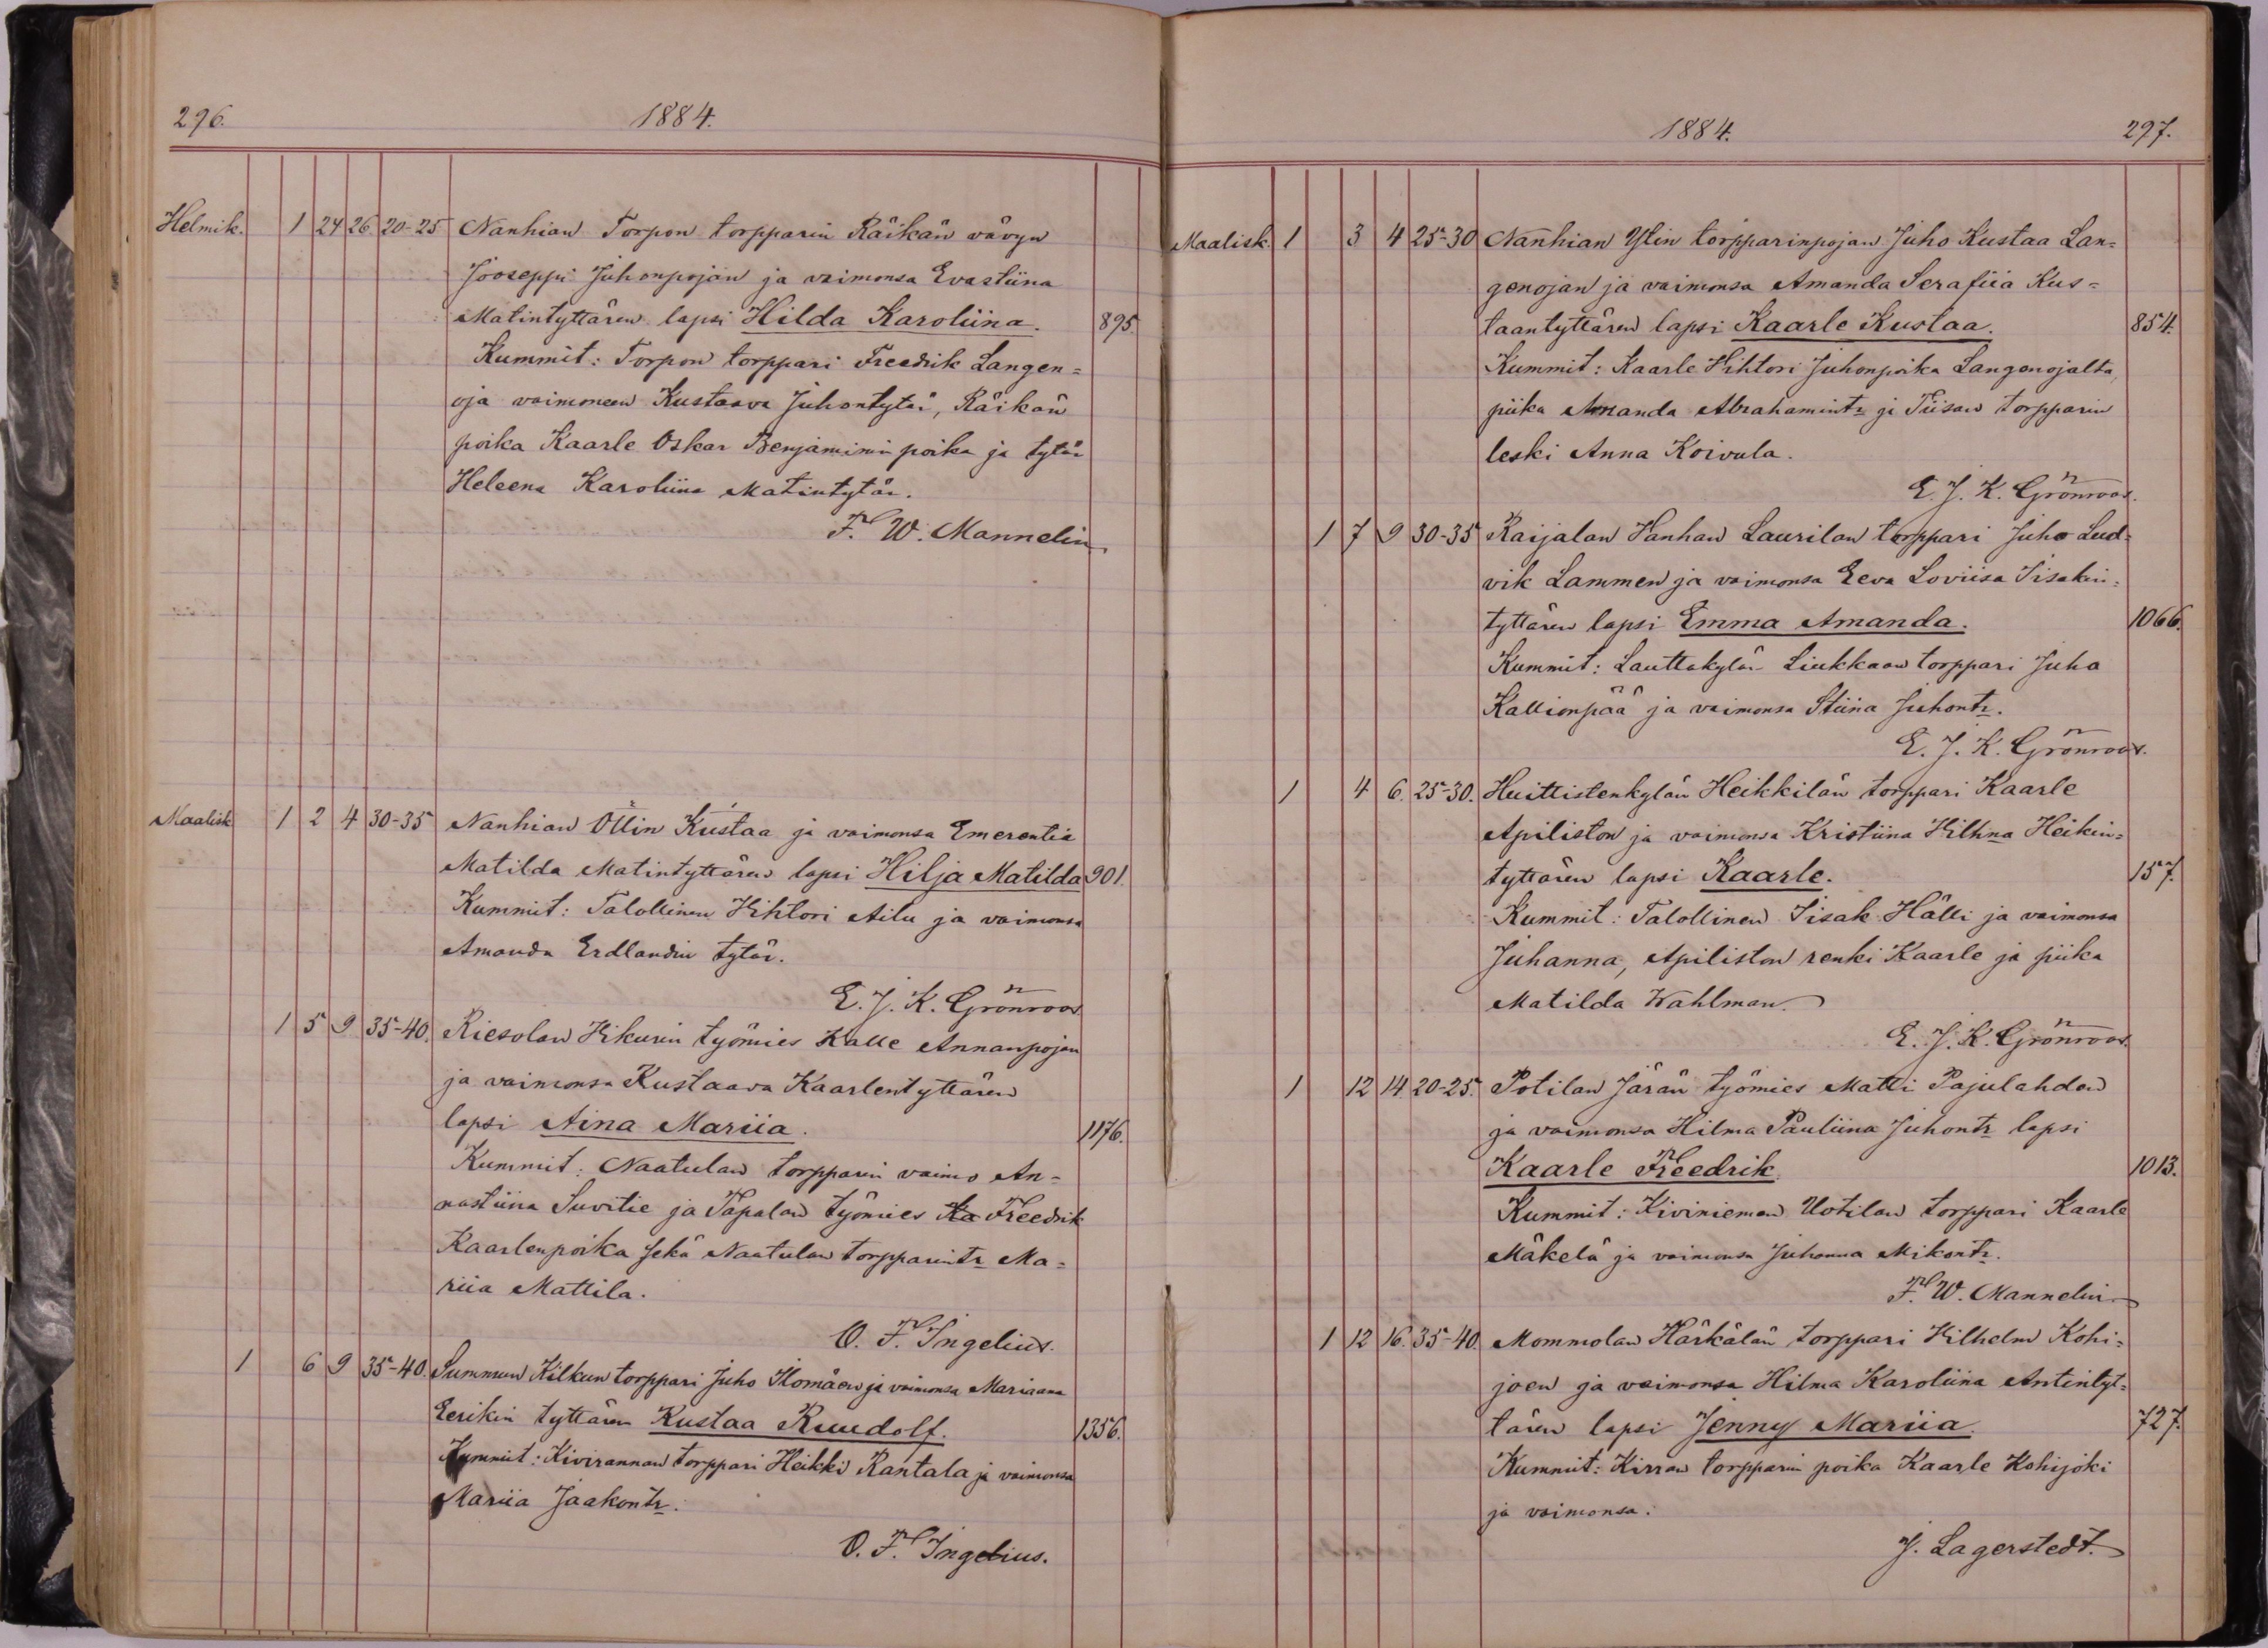 296. 1884.
Helmik. 1 24 26. 20-25 Nanhian Torpon torpparin Räikän vävyn
Jooseppi Juhonpojan ja vaimonsa Evastiina
Matintyttären lapsi Hilda Karoliina. 895.
Kummit: Torpon torppari Freedrik Langen=
oja vaimoneen Kustaava Juhontytär, Räikän
poika Kaarle Oskar Benjamimin poika ja tytär
Heleena Karoliina Matintytär.
F. W. Mannelin
Maalisk 1 2 4 30-35 Nanhian Ollin Kustaa ja vaimonsa Emerentia
Matilda Matintyttären lapsi Hilja Matilda 901.
Kummit: Talollinen Vihtori Ailu ja vaimonsa
Amanda Erdlandin tytär.
E. J. K. Grönroos
1 5 9 35-40. Riesolan Vikurin työmies Kalle Annanpojan
ja vaimonsa Kustaava Kaarlentyttären
lapsi Aina Mariia. 1176.
Kummit: Naatulan torpparin vaimo An=
nastiina Suvitie ja Tapalan työmies Ka Freedrik
Kaarlenpoika sekä Naatulan torpparintr Ma=
riia Mattila.
O. F. Ingelius.
1 6 9 35-40. Summun Kilkun torppari Juho Ilomäen ja vaimonsa Mariaana
Eerikin tyttären Kustaa Ruudolf. 1356.
Kummit: Kivirannan torppari Heikki Rantala ja vaimonsa
Mariia Jaakontr.
O. F. Ingelius.
1884. 297.
Maalisk. 1 3 4 25-30 Nanhian Ylin torpparinpojan Juho Kustaa Lan=
genojan ja vaimonsa Amanda Serafiia Kus=
taantyttären lapsi Kaarle Kustaa. 854.
Kummit: Kaarle Vihtori Juhonpoika Langenojalta,
piika Amanda Abrahamintr ja Tiisan torpparin
leski Anna Koivula.
E. J. K. Grönroos.
1 7 9 30-35 Raijalan Vanhan Laurilan torppari Juho Lud=
vik Lammen ja vaimonsa Eeva Loviisa Iisakin=
tyttären lapsi Emma Amanda. 1066.
Kummit: Lauttakylän Liukkaan torppari Juha
Kallionpää ja vaimonsa Stiina Juhontr.
E. J. K. Grönroos.
1 4 6. 25-30. Huittistenkylän Heikkilän torppari Kaarle
Apiliston ja vaimonsa Kristiina Vilhna Heikin=
tyttären lapsi Kaarle. 157.
Kummit: Talollinen Iisak Hälli ja vaimonsa
Juhanna, Apiliston renki Kaarle ja piika
Matilda Wahlman.
E. J. K. Grönroos.
1 12 14 20-25. Potilan Järän työmies Matti Pajulahden
ja vaimonsa Hilma Pauliina Juhontr lapsi
Kaarle Freedrik. 1013.
Kummit: Kiviniemen Uotilan torppari Kaarle
Mäkelä ja vaimonsa Juhanna Mikontr.
F. W. Mannelin
1 12 16. 35-40. Mommolan Härkälän torppari Vilhelm Kohi=
joen ja vaimonsa Hilma Karoliina Antintyt=
tären lapsi Jenny Mariia. 727.
Kummit: Kirran torpparin poika Kaarle Kohijoki
ja vaimonsa.
J. Lagerstedt.